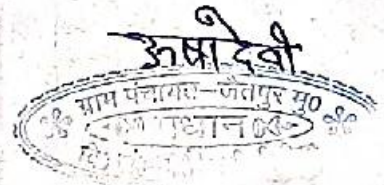 ऊषा देवी
ग्राम पंचायत-जैतपुर मु0
प्रधान